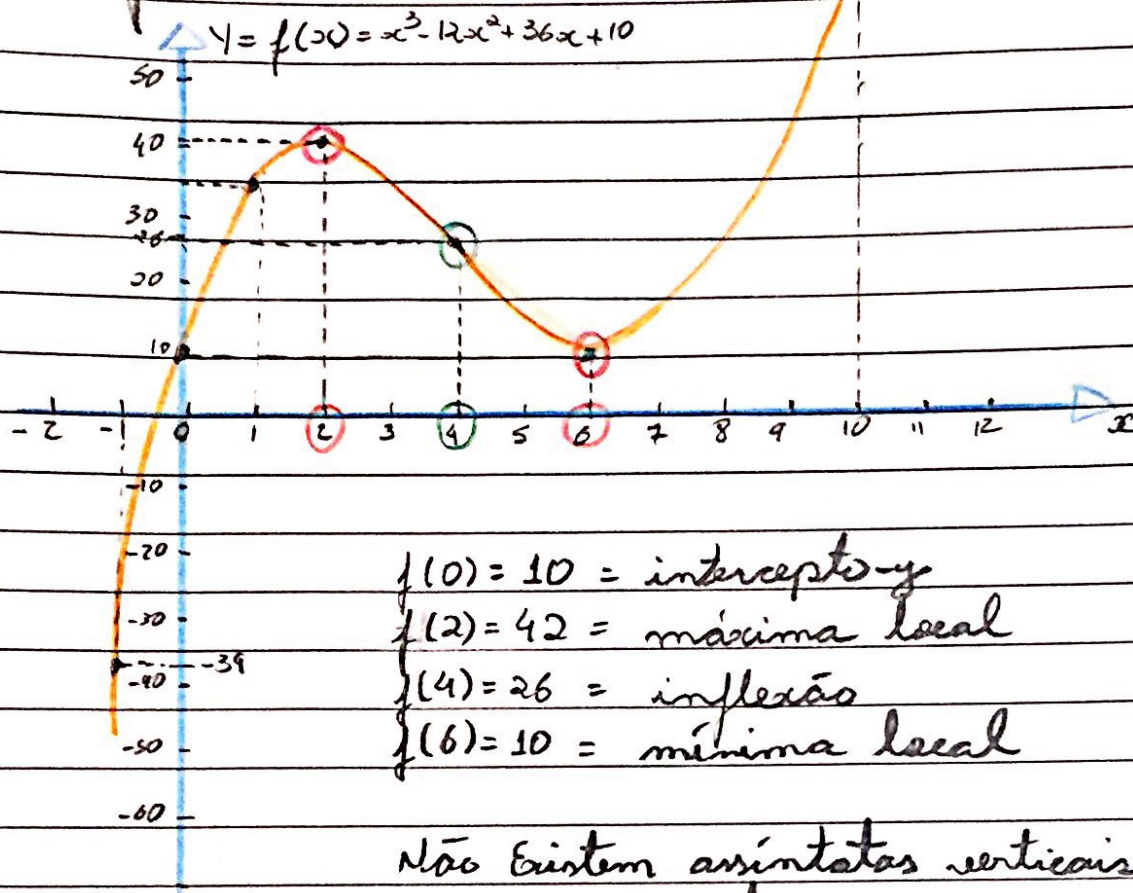 Y = f(x) = x³ - 12x² + 36x + 10
50
40
30
26
20
10
-2 -1 0 1 2 3 4 5 6 7 8 9 10 11 12 x
-10
-20
-30
-39
-40
-50
-60
f(0) = 10 = intercepto-y
f(2) = 42 = máxima local
f(4) = 26 = inflexão
f(6) = 10 = mínima local
Não Existem assíntotas verticais